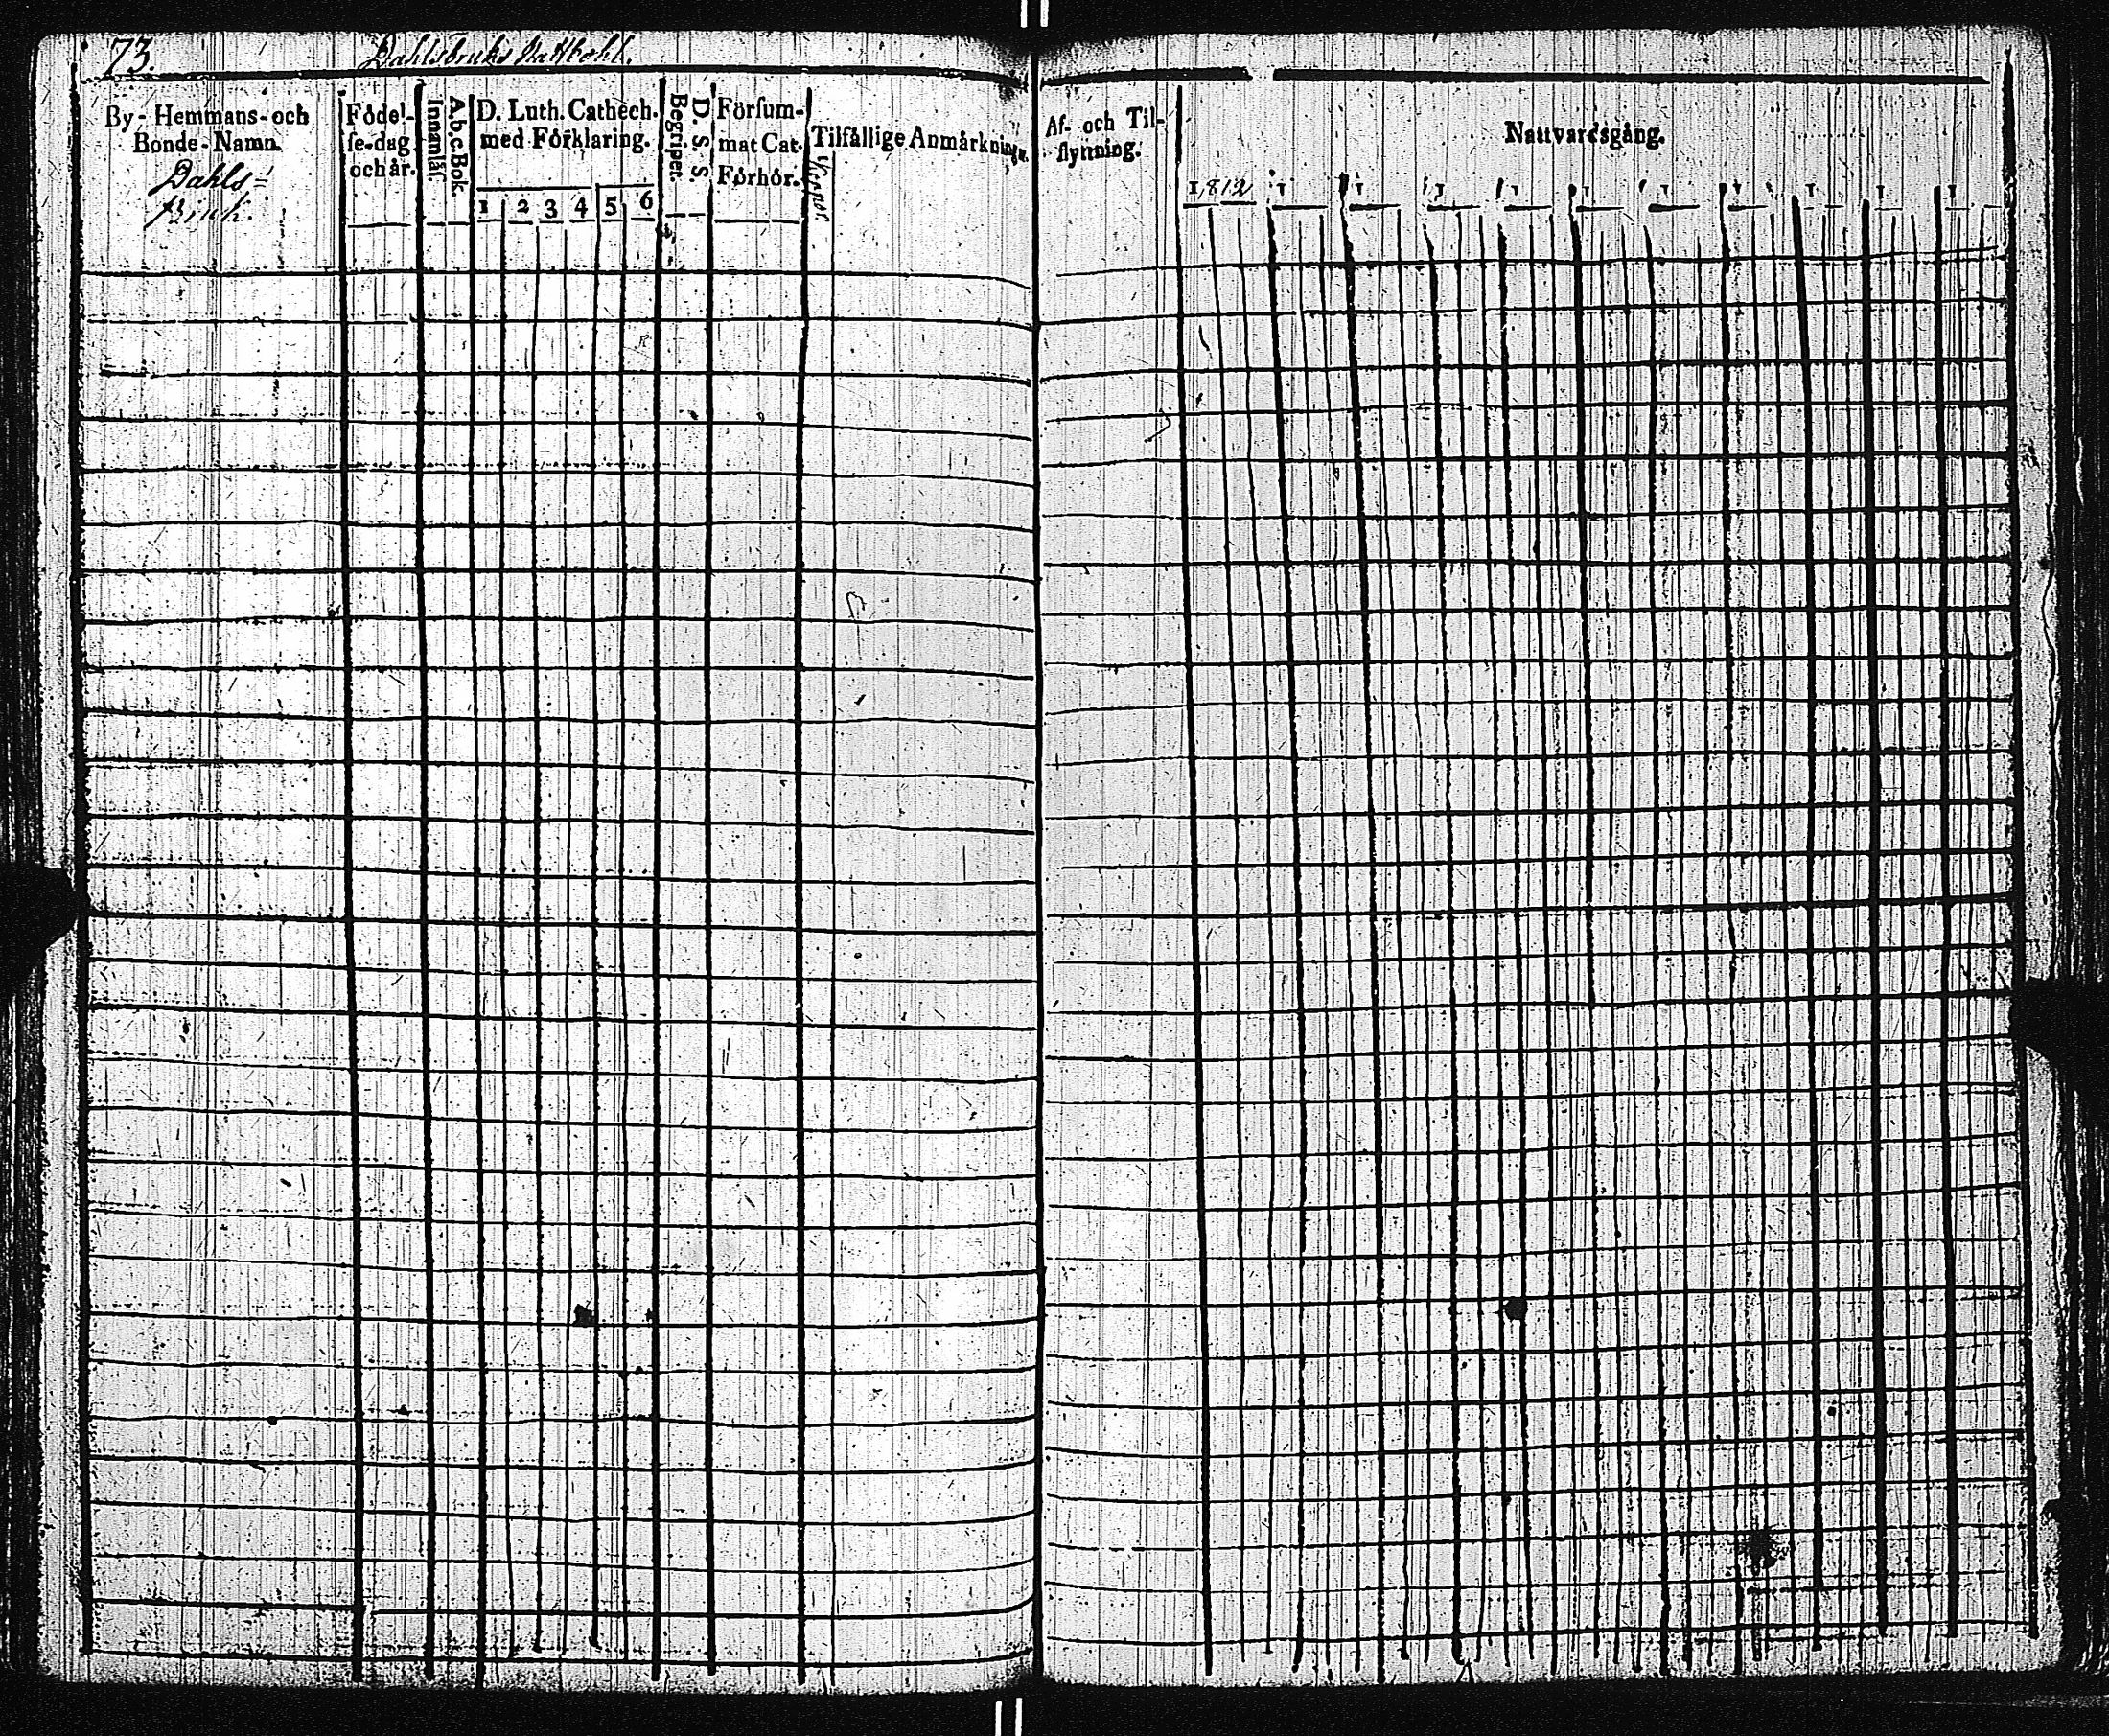 73. Dahlsbruks
By- Hemmans- och
Bonde-Namn.
Dahls=
Bruk.
Födel-
ſe-dag
och år.
Innanläſ.
A.b.c.Bok.
D. Luth. Cathech.
med Förklaring.
1 2 3 4 5 6
Begriper.
D. S. S.
Förſum-
mat Cat.
Förhör.
Tilfällige Anmärkningar.
Af- och Til-
flyttning.
Nattvardsgång.
1812 1 1 1 1 1 1 1 1 1 1